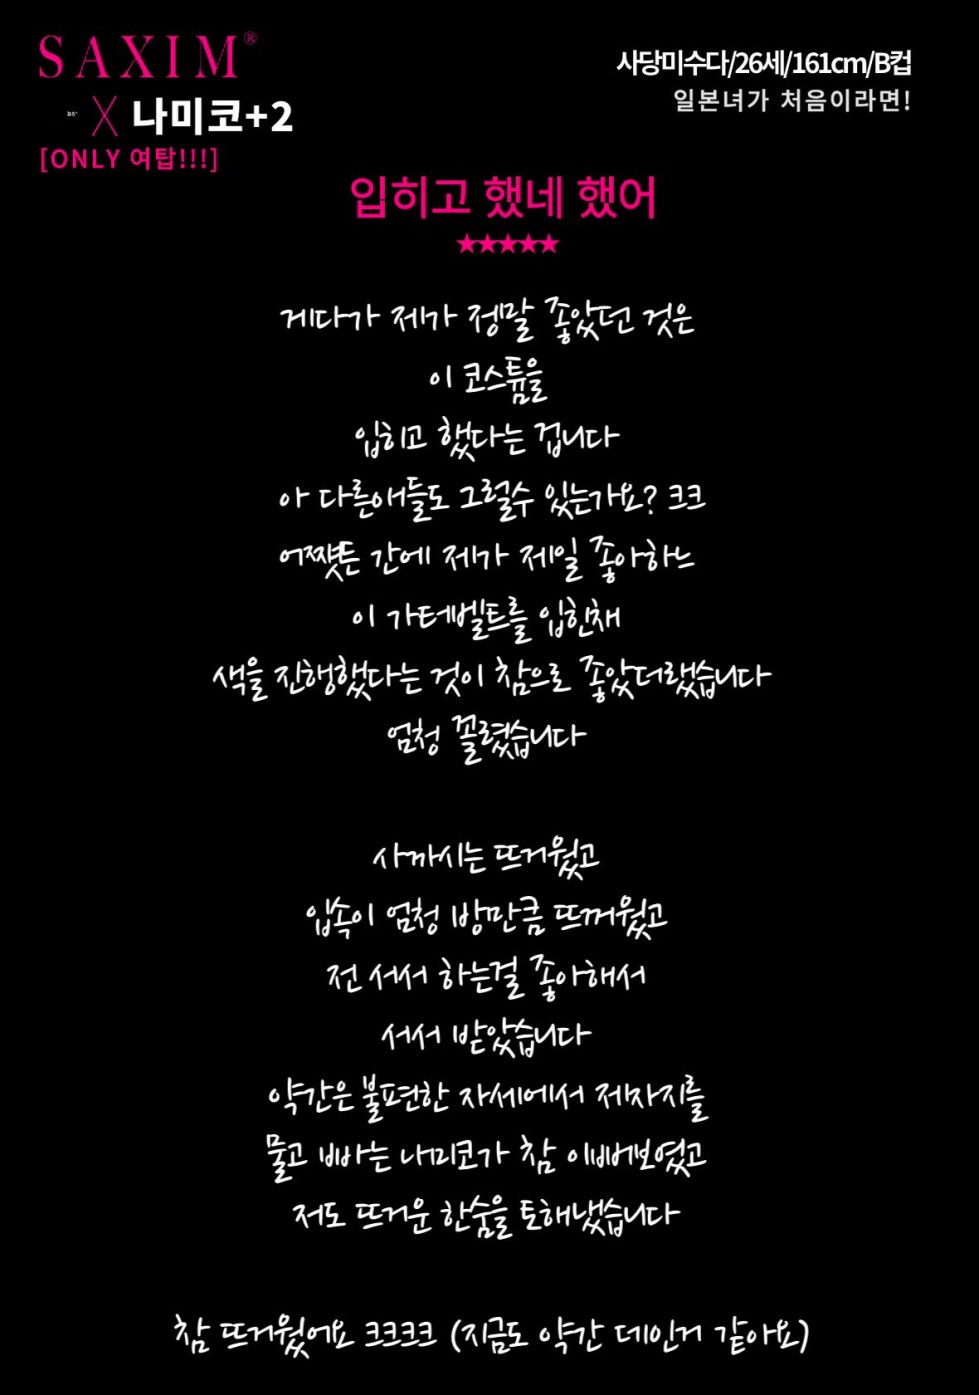 SAXIM®
X 나미코+2
[ONLY 여탑!!!]
사당미수다/26세/161cm/B컵
일본녀가 처음이라면!
입히고 했네 했어
★★★★★
게다가 제가 정말 좋았던 것은
이 코스튬을
입히고 했다는 겁니다
아 다른애들도 그럴수 있는가요? 크크
어쨋든 간에 제가 제일 좋아하느
이 가터벨트를 입힌채
색을 진행했다는 것이 참으로 좋았더랬습니다
엄청 꼴렸습니다
사까시는 뜨거웠고
입속이 엄청 방만큼 뜨꺼웠고
전 서서 하는걸 좋아해서
서서 받았습니다
약간은 불편한 자세에서 제자지를
물고 빠는 나미코가 참 이뻐보였고
저도 뜨거운 한숨을 토해냈습니다
참 뜨거웠어요 크크크크 (지금도 약간 데인거 같아요)